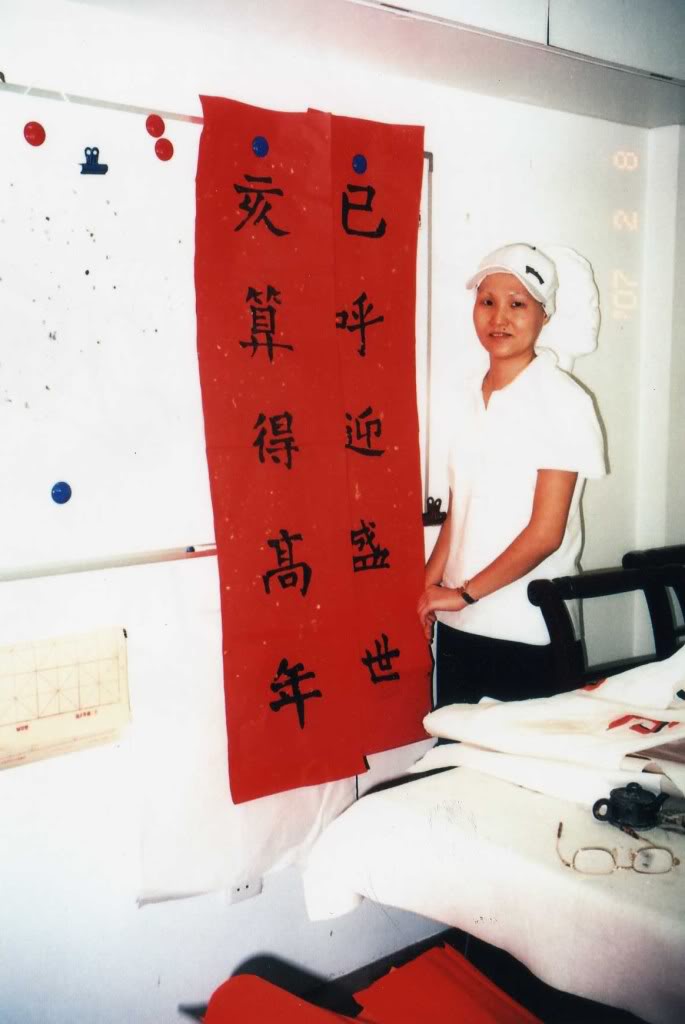 已呼迎盛世
亥算得髙年
'07 2 8